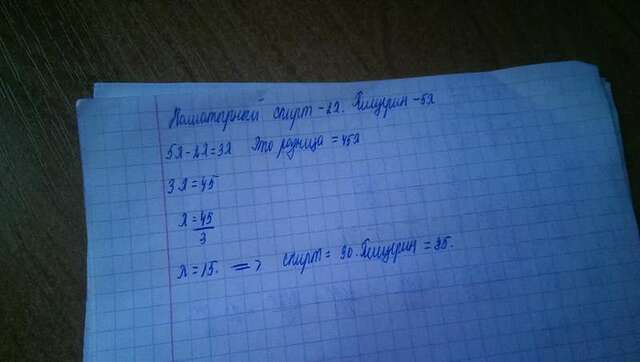 Нашатырный спирт - 2х. Глицерин - 5х
5х - 2х = 3х Это разница = 45г
3х = 45
х = 45
3
х = 15. => спирт = 30. Глицерин = 35.